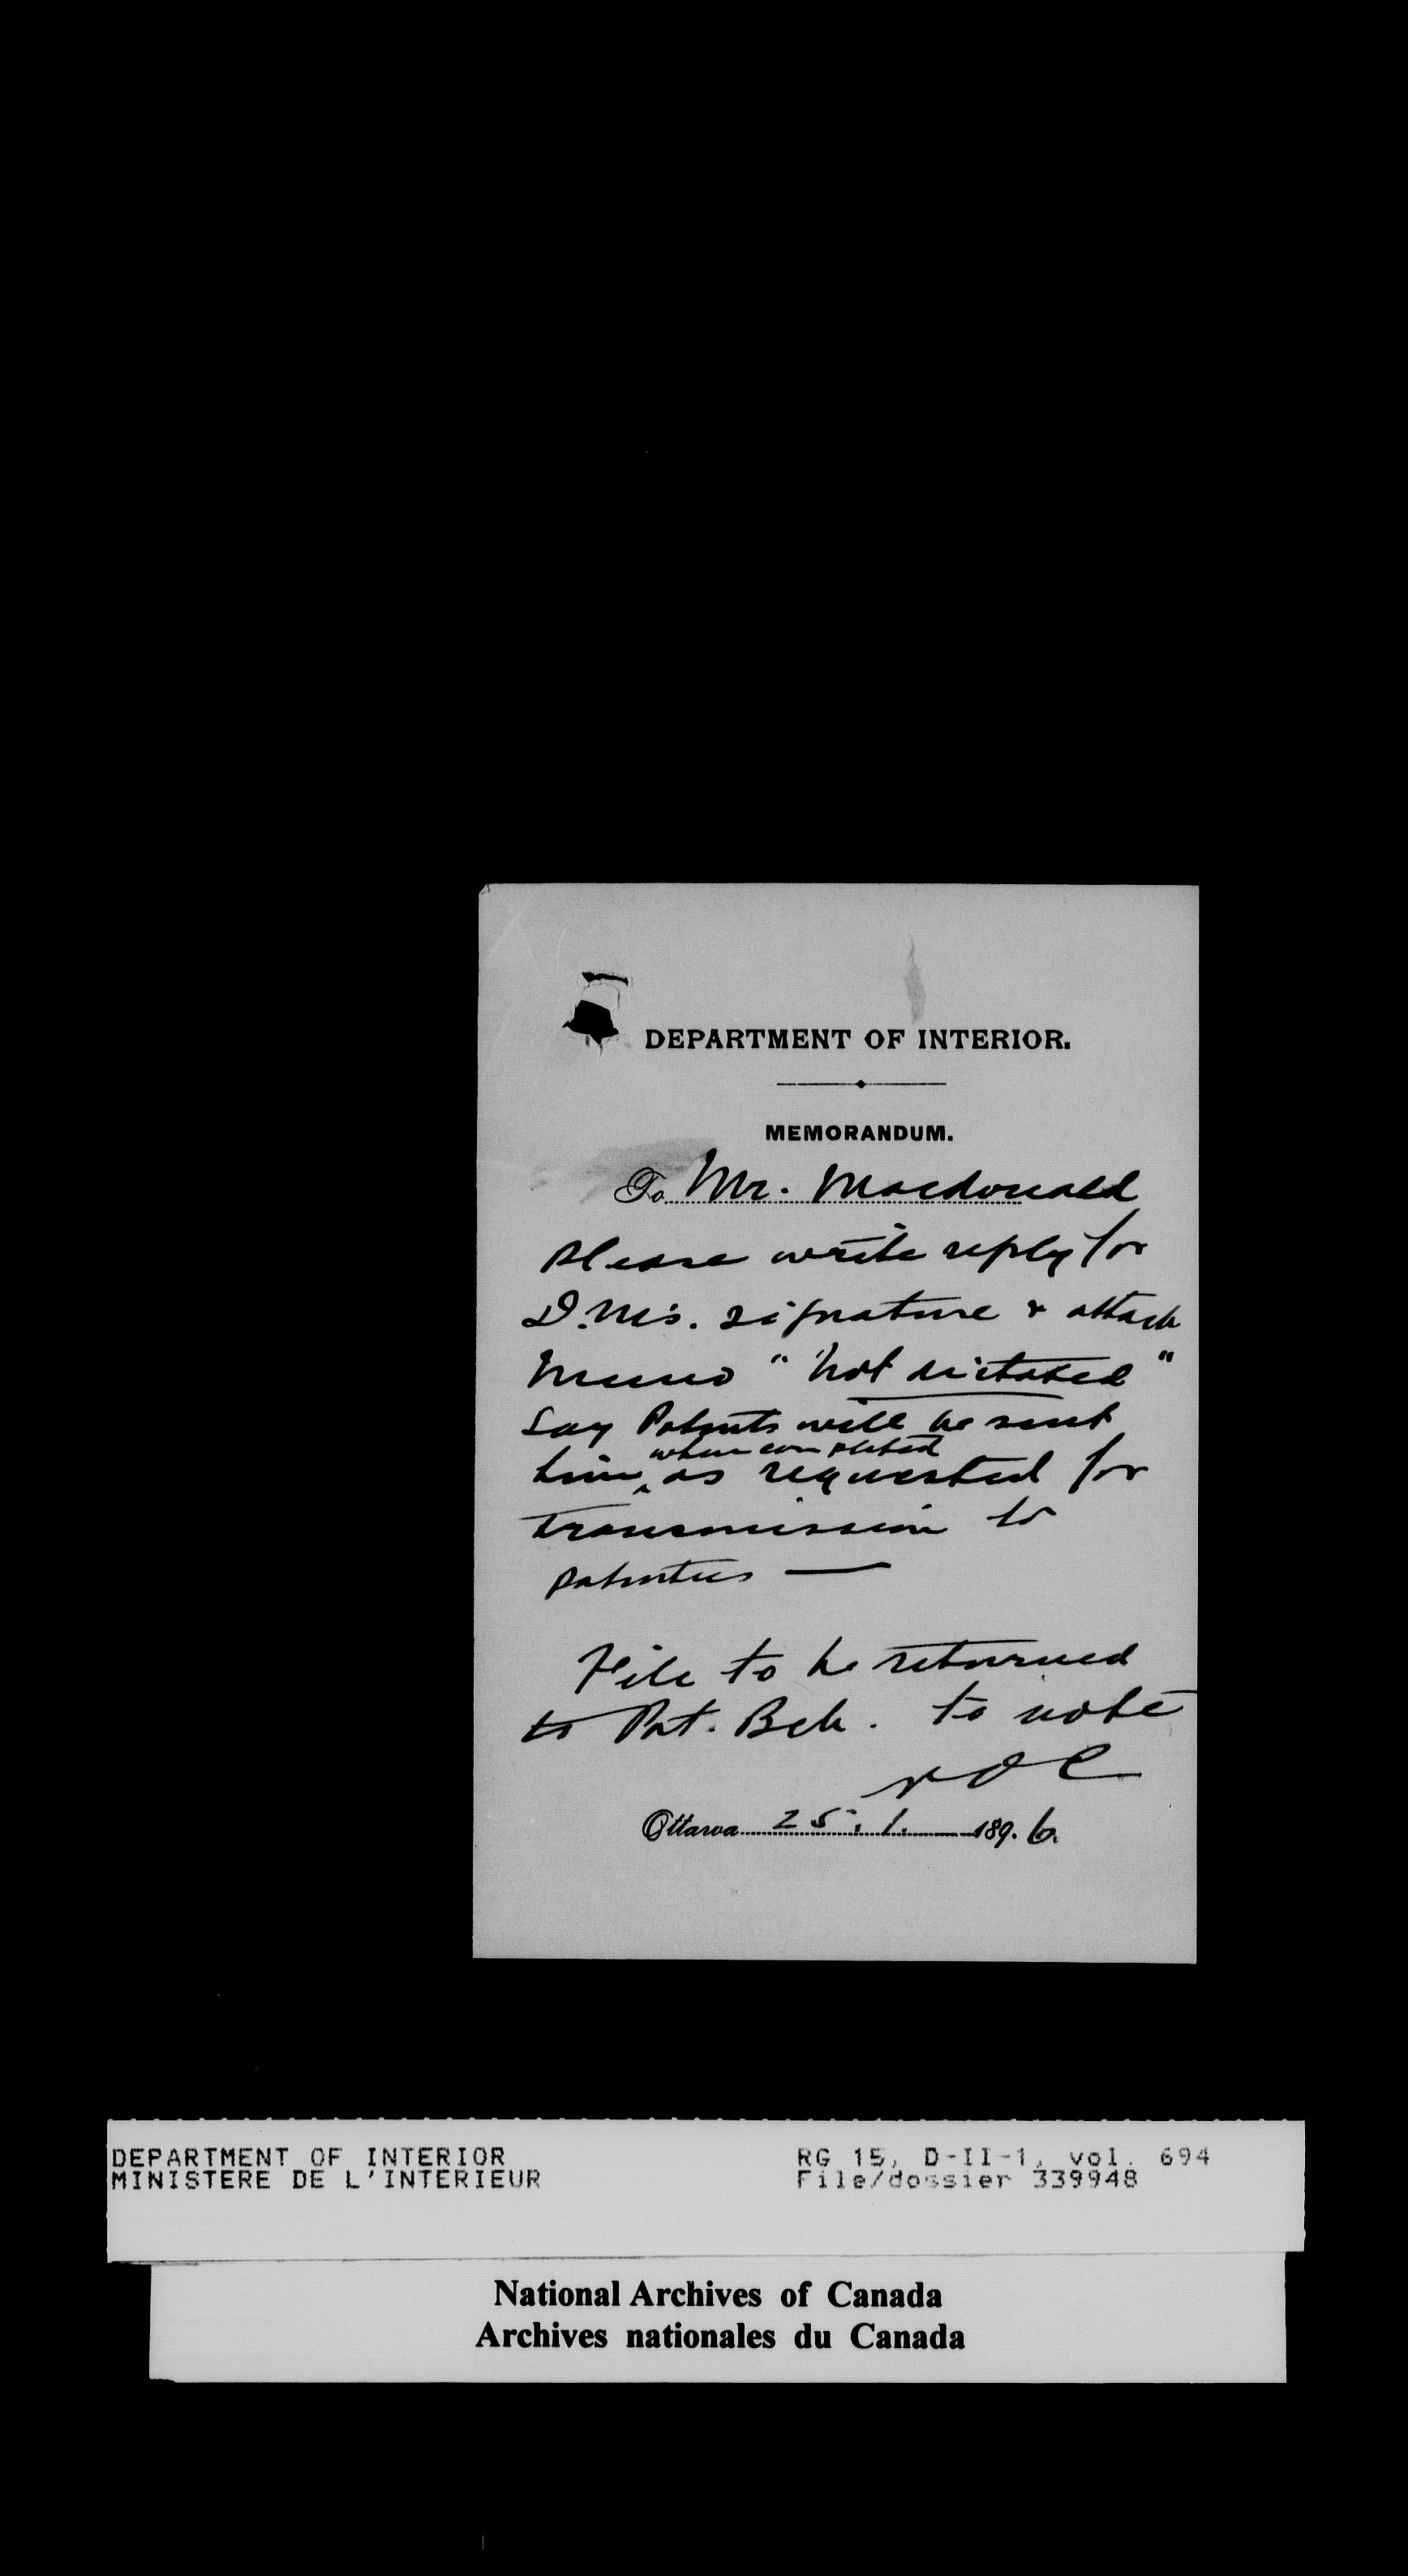 DEPARTMENT OF INTERIOR.
MEMORANDUM.
To Mr. Macdonald
Please write reply for
D.M's. signature & attach
Memo "Not dictated"
Say Patents will be sent
when completed
him ^ as requested for
transmission to
patentees —
File to be returned
to Pat. Bch. to note
Ottawa 25.1. 1896.
DEPARTMENT OF INTERIOR
MINISTERE DE L'INTERIEUR
RG 15, D-II-1, vol. 694
File/dossier 339948
National Archives of Canada
Archives nationales du Canada